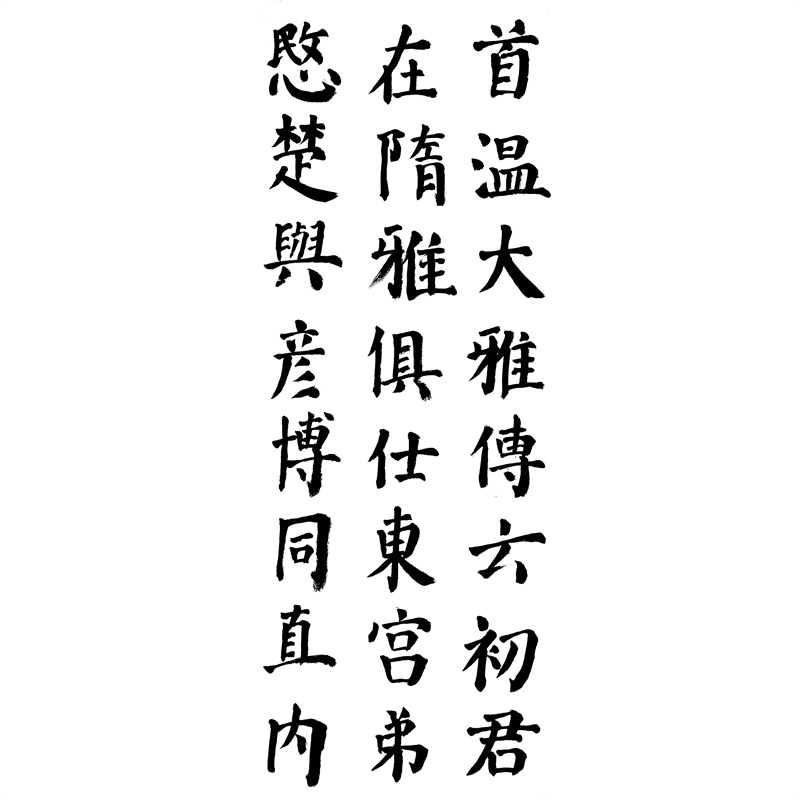 首温大雅傳云初君
在隋雅俱仕東宫弟
愍楚與彦博同直内